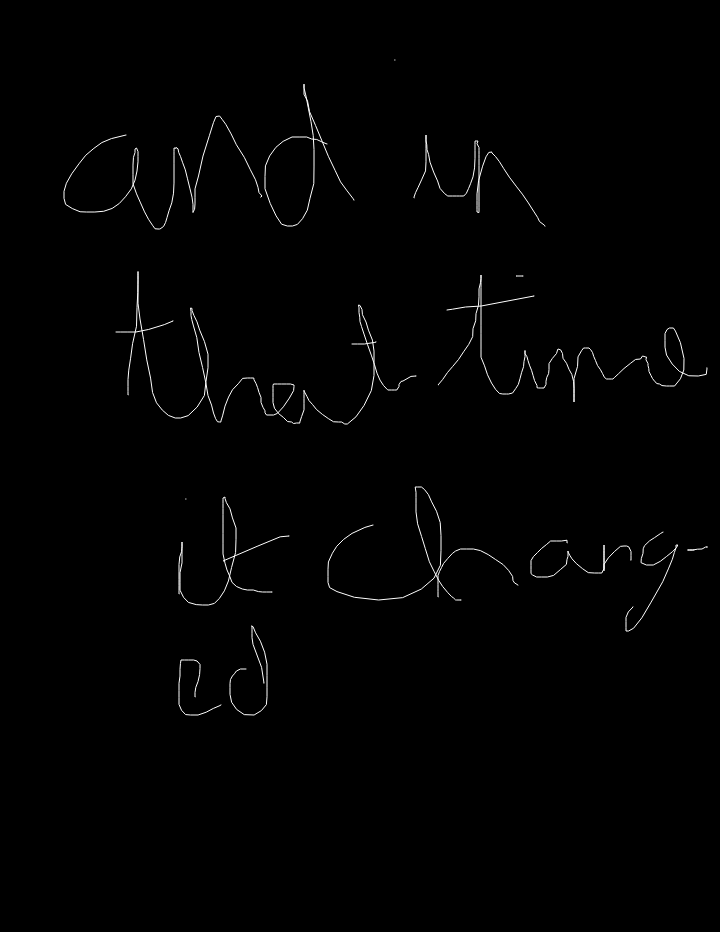 and in
that time
it chang-
ed